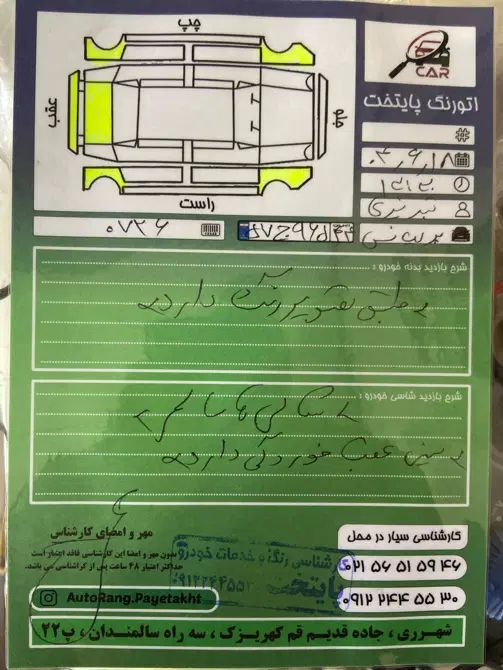 چپ
عقب
جلو
راست
CAR
اتورنگ پایتخت
#
۰۴,۶,۱۸
تبریزی
۰۷۲۶
شرح بازدید بدنه خودرو :
شرح بازدید شاسی خودرو :
شاسی ها سالم
سینی عقب خوردگی دارد
مهر و امضای کارشناس
بدون مهر و امضا این کارشناسی فاقد اعتبار است
حداکثر اعتبار ۴۸ ساعت پس از کارشناسی می باشد.
کارشناسی سیار در محل
۰۲۱ ۵۶ ۵۱ ۵۹ ۴۶
۰۹۱۲ ۲۴۴ ۵۵ ۳۰
AutoRang.Payetakht
کارشناسی رنگ و خدمات خودرو
پایتخت
شهرری ، جاده قدیم قم کهریزک ، سه راه سالمندان ، پ۲۲